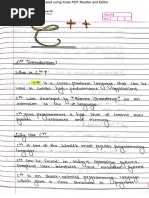 Scanned using Kudo PDF Reader and Editor
C++
C++ Introduction:
What is C++?
C++ is a cross-platform language that can be
used to create high-performance applications.
C++ was developed by "Bjarne Stroustrup" as an
extension to the C language.
C++ gives programmers a high level of control over
system resources and memory.
Why Use C++
C++ is one of the world's most popular programming
language.
C++ can be found in today's operating systems,
Graphical User Interfaces, and embedded systems.
C++ is an object-oriented programming language
which gives a clear structure to